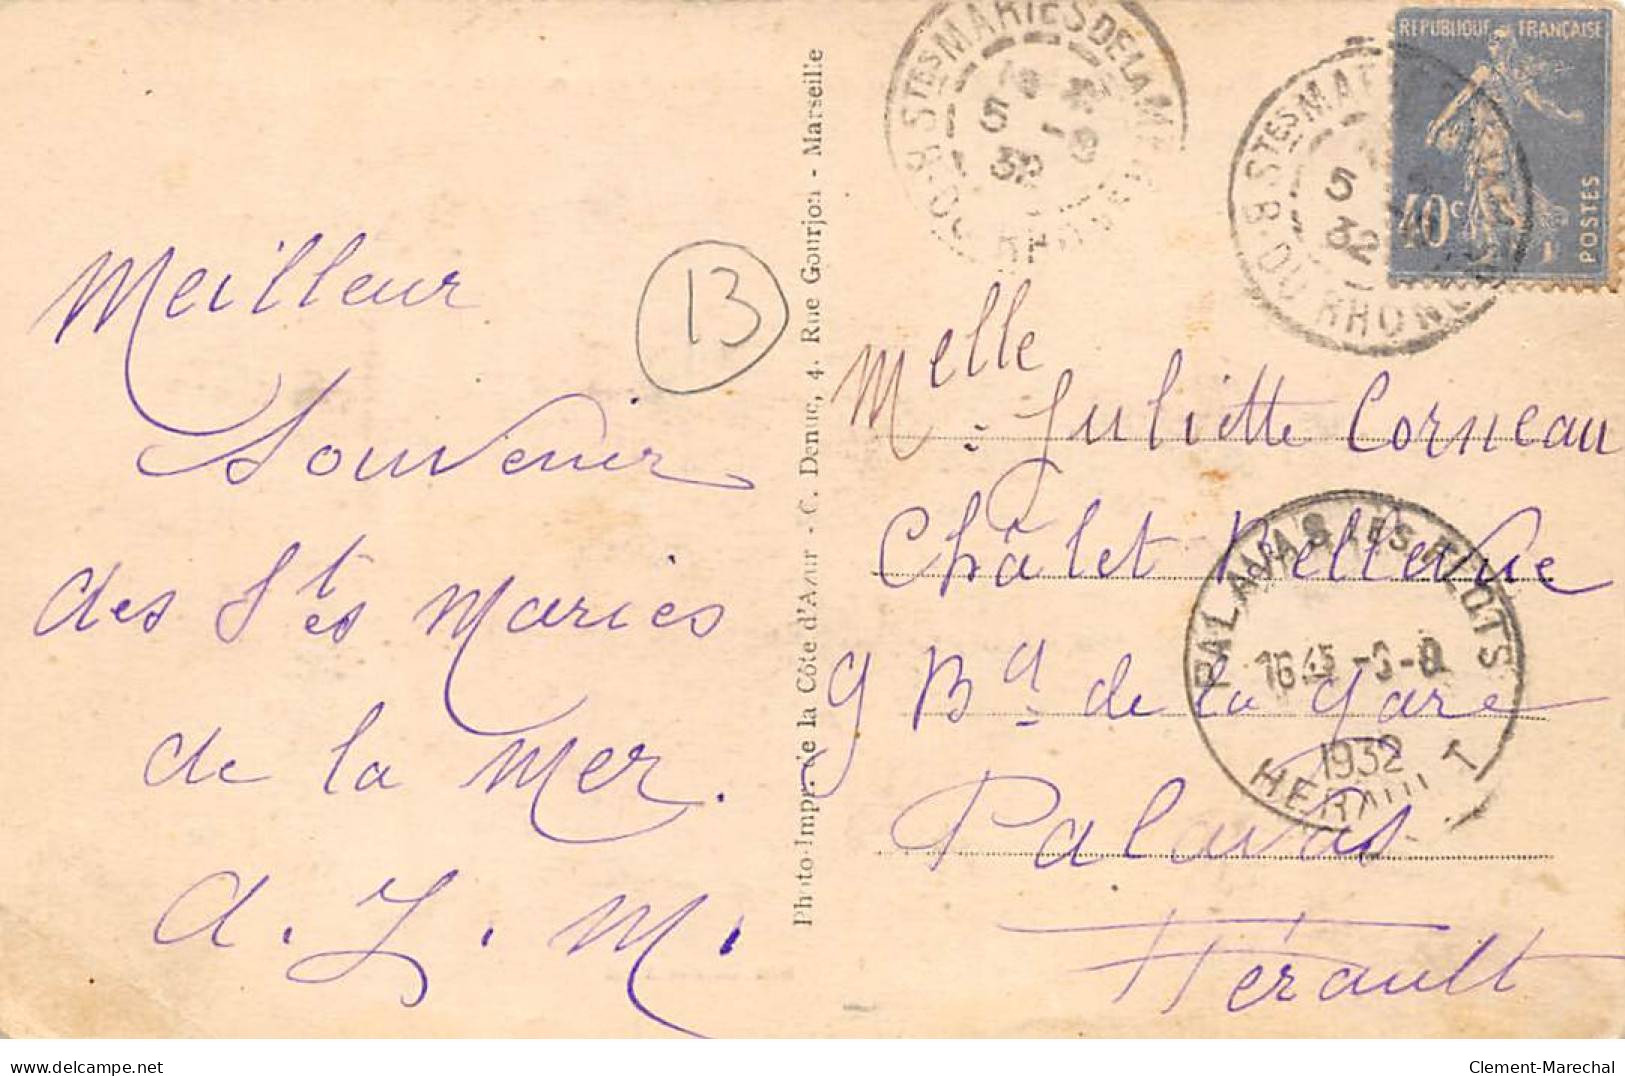 Meilleur
Souvenir
des Stes Maries
de la Mer.
13
Photo-Impr. de la Côte d'Azur - C. Denuc, 4. Rue Gourjon - Marseille
STES MARIES DE LA M
5 -9
32
B. DU RHONE
REPUBLIQUE FRANÇAISE
40c
POSTES
STES MA
5
32
B. DU RHONE
Melle Juliette Corneau
Châlet Bellevue
9 Bd de la gare
Palavas
Hérault
PALAVAS LES FLOTS
1645
1932
HERAULT
delcampe.net
Clement-Marechal